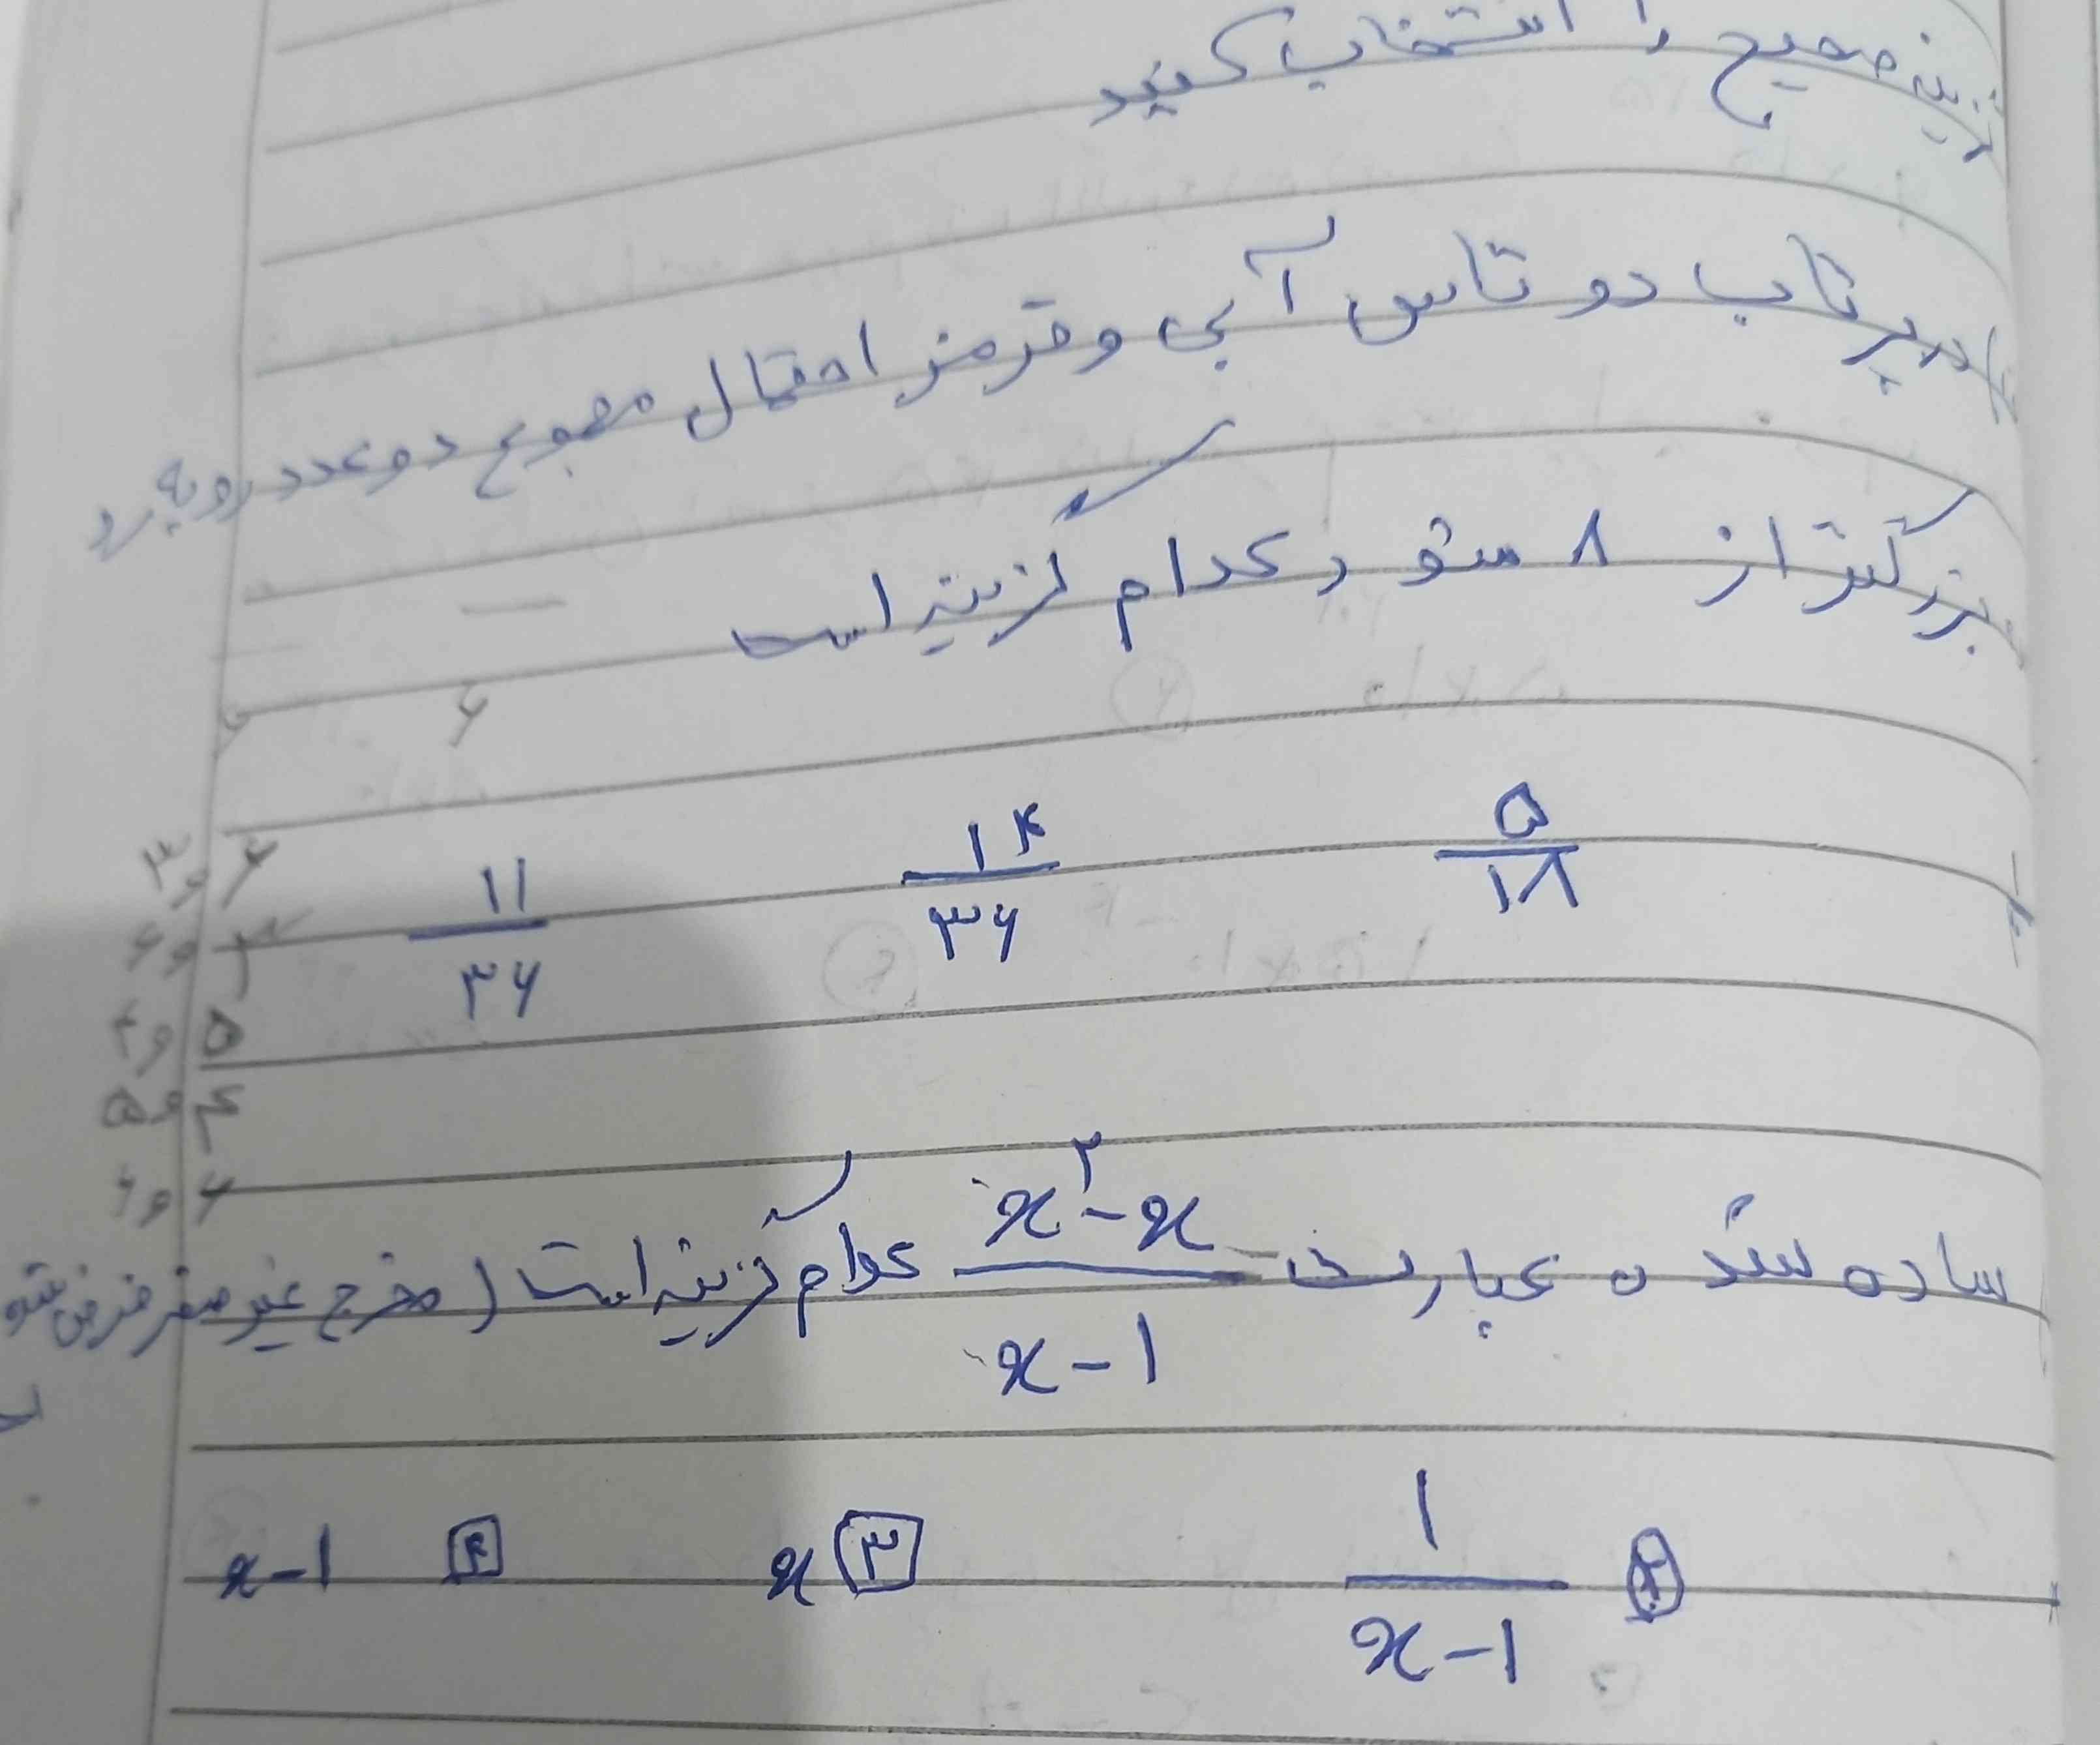 گزینه صحیح را انتخاب کنید
در پرتاب دو تاس آبی و قرمز احتمال مجموع دو عدد رو
بزرگتر از ۸ شود کدام گزینه است
۶
۵/۱۸ ۱۴/۳۶ ۱۱/۳۶
۶ و ۳
۵ و ۴
۴ و ۵
۶ و ۶
ساده شده عبارت x^۲-x/x-۱ کدام گزینه است (مخرج غیر صفر فرض شو
۲ ۱/x-۱ ۳ x ۴ x-۱